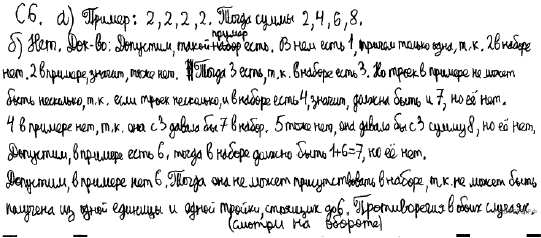 С6. а) Пример: 2, 2, 2, 2. Тогда суммы 2, 4, 6, 8.
пример
б) Нет. Док-во: Допустим, такой набор есть. В нем есть 1, причем только одна, т.к. 2 в наборе
нет. 2 в примере, значит, тоже нет. Тогда 3 есть, т.к. в наборе есть 3. Но троек в примере не может
быть несколько, т.к. если троек несколько, и в наборе есть 4, значит, должна быть и 7, но её нет.
4 в примере нет, т.к. она с 3 давала бы 7 в набор. 5 тоже нет, она давала бы с 3 сумму 8, но её нет.
Допустим, в примере есть 6, тогда в наборе должно быть 1+6=7, но её нет.
Допустим, в примере нет 6. Тогда она не может присутствовать в наборе, т.к. не может быть
получена из одной единицы и одной тройки, стоящих до 6. Противоречия в обоих случаях.
(смотри на обороте)